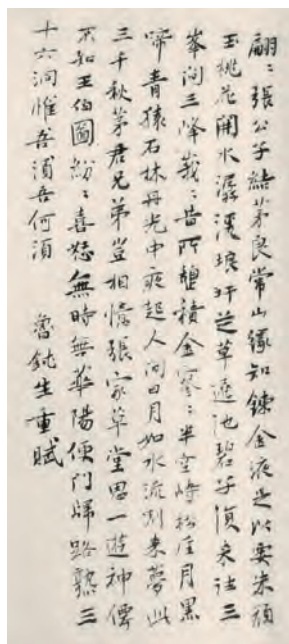 翩〻張公子結茅良常山緣知鍊金液足以要朱顏
玉桃花開水潺湲琅玕芝草遶池碧子須來往三
峯间三峰峩〻昔所歷積金寥〻半空峙松厓月黒
啼青猿石林丹光中夜起人间日月如水流别来夢此
三千秋茅君兄弟豈相憶張家草堂思一遊神僊
不如王伯圖紛〻喜怒無時無華陽便門歸路熟三
十六洞惟吾須吾何須 魯鈍生重賦